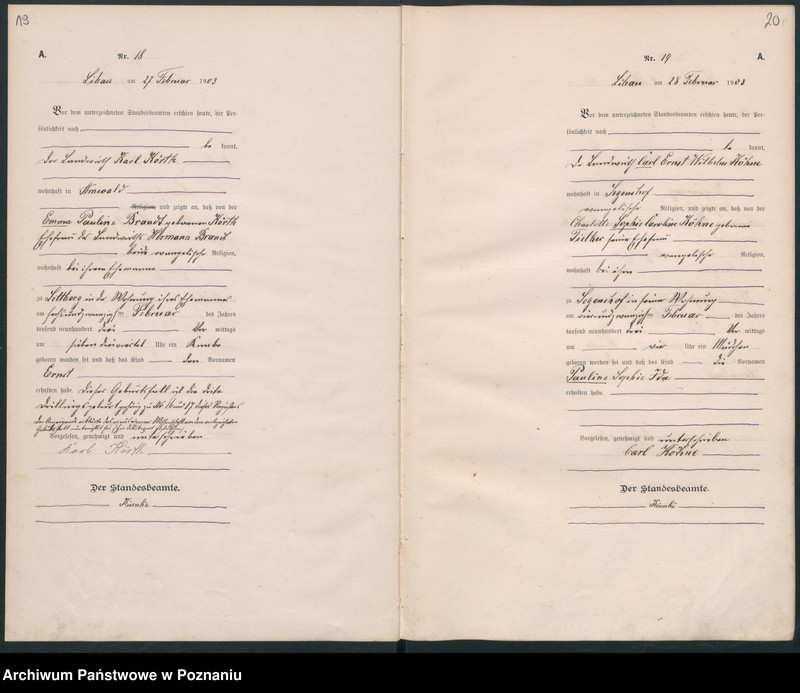 19
A.
Nr. 18
Libau am 27 Februar 1903
Vor dem unterzeichneten Standesbeamten erschien heute, der Per-
sönlichkeit nach
be kannt,
der Landwirth Karl Körth
wohnhaft in Arnswald
Religion, und zeigte an, daß von der
Emma Pauline Brandt geborenen Körth
Ehefrau des Landwirths Hermann Brandt
beide evangelischer Religion,
wohnhaft bei ihrem Ehemanne
zu Lettberg in der Wohnung ihres Ehemannes
am sechsundzwanzigsten Februar des Jahres
tausend neunhundert drei Vor mittags
um sieben dreiviertel Uhr ein Knabe
geboren worden sei und daß das Kind den Vornamen
Ernst
erhalten habe. Dieser Geburtsfall ist der dritte
zu Nr 16 und 17 dieses Registers
Vorgelesen, genehmigt und unterschrieben
Karl Körth
Der Standesbeamte.
20
Nr. 19
A.
Libau am 28 Februar 1903
Vor dem unterzeichneten Standesbeamten erschien heute, der Per-
sönlichkeit nach
be kannt,
der Landwirth Carl Ernst Wilhelm Höhne
wohnhaft in
evangelischer Religion, und zeigte an, daß von der
Charlotte Sophie Caroline Höhne geborenen
seiner Ehefrau
evangelischer Religion,
wohnhaft bei ihm
zu in seiner Wohnung
am vierundzwanzigsten Februar des Jahres
tausend neunhundert drei Vor mittags
um vier Uhr ein Mädchen
geboren worden sei und daß das Kind die Vornamen
Pauline Sophie Ida
erhalten habe.
Vorgelesen, genehmigt und unterschrieben
Carl Höhne
Der Standesbeamte.
Archiwum Państwowe w Poznaniu